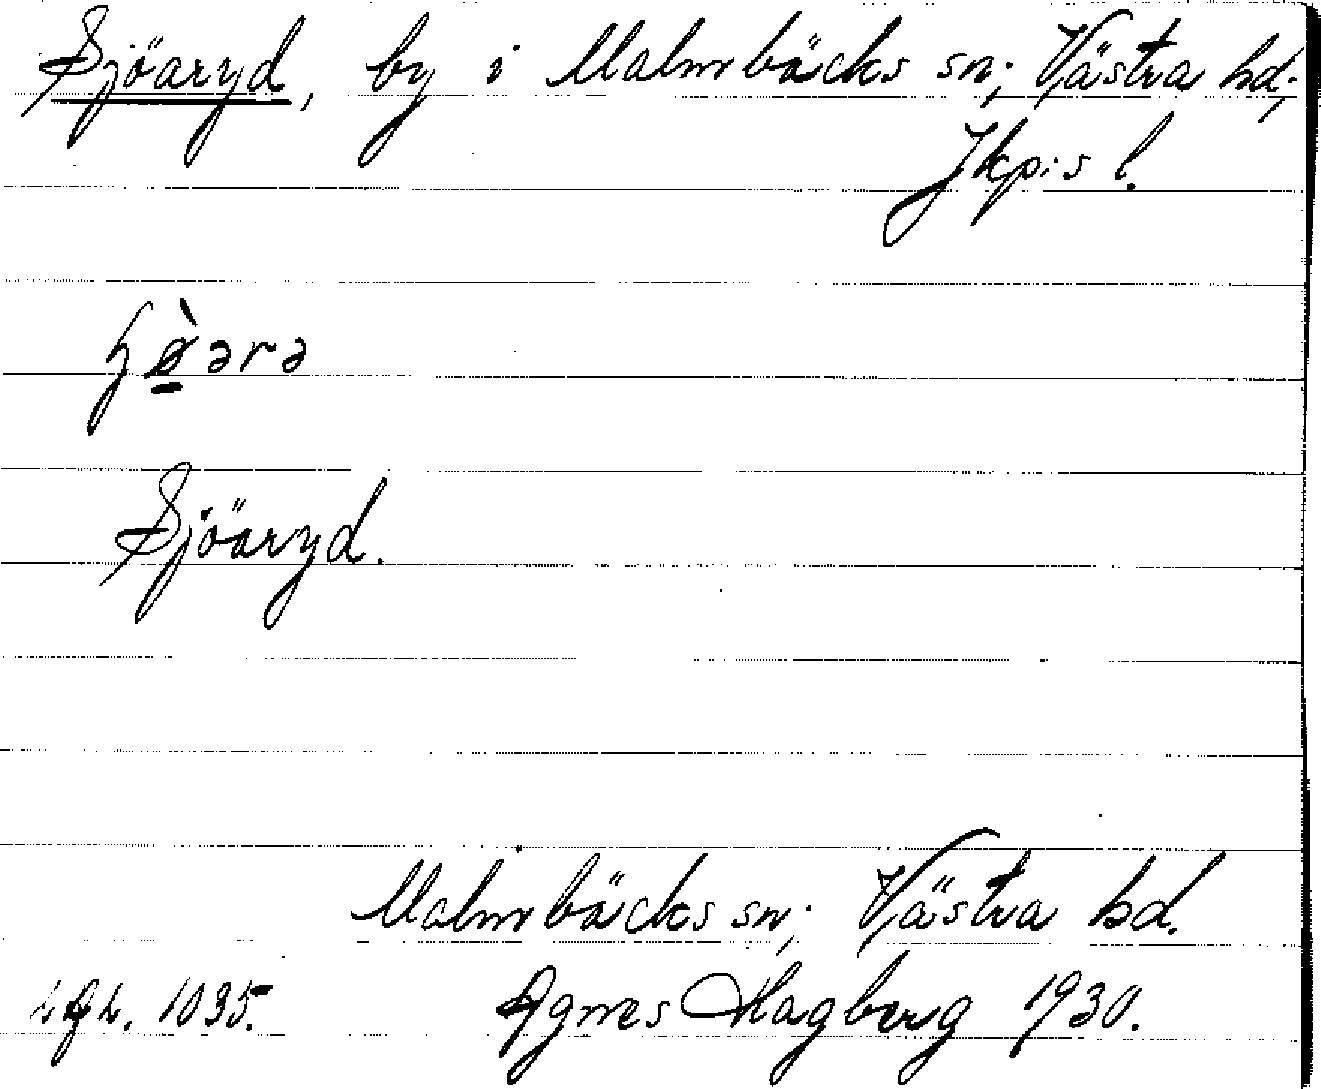 Sjöaryd, by i Malmbäcks sn; Västra hd;
Jkp:s l.
ərə
Sjöaryd.
Malmbäcks sn; Västra hd.
1035. Agnes Hagberg 1930.